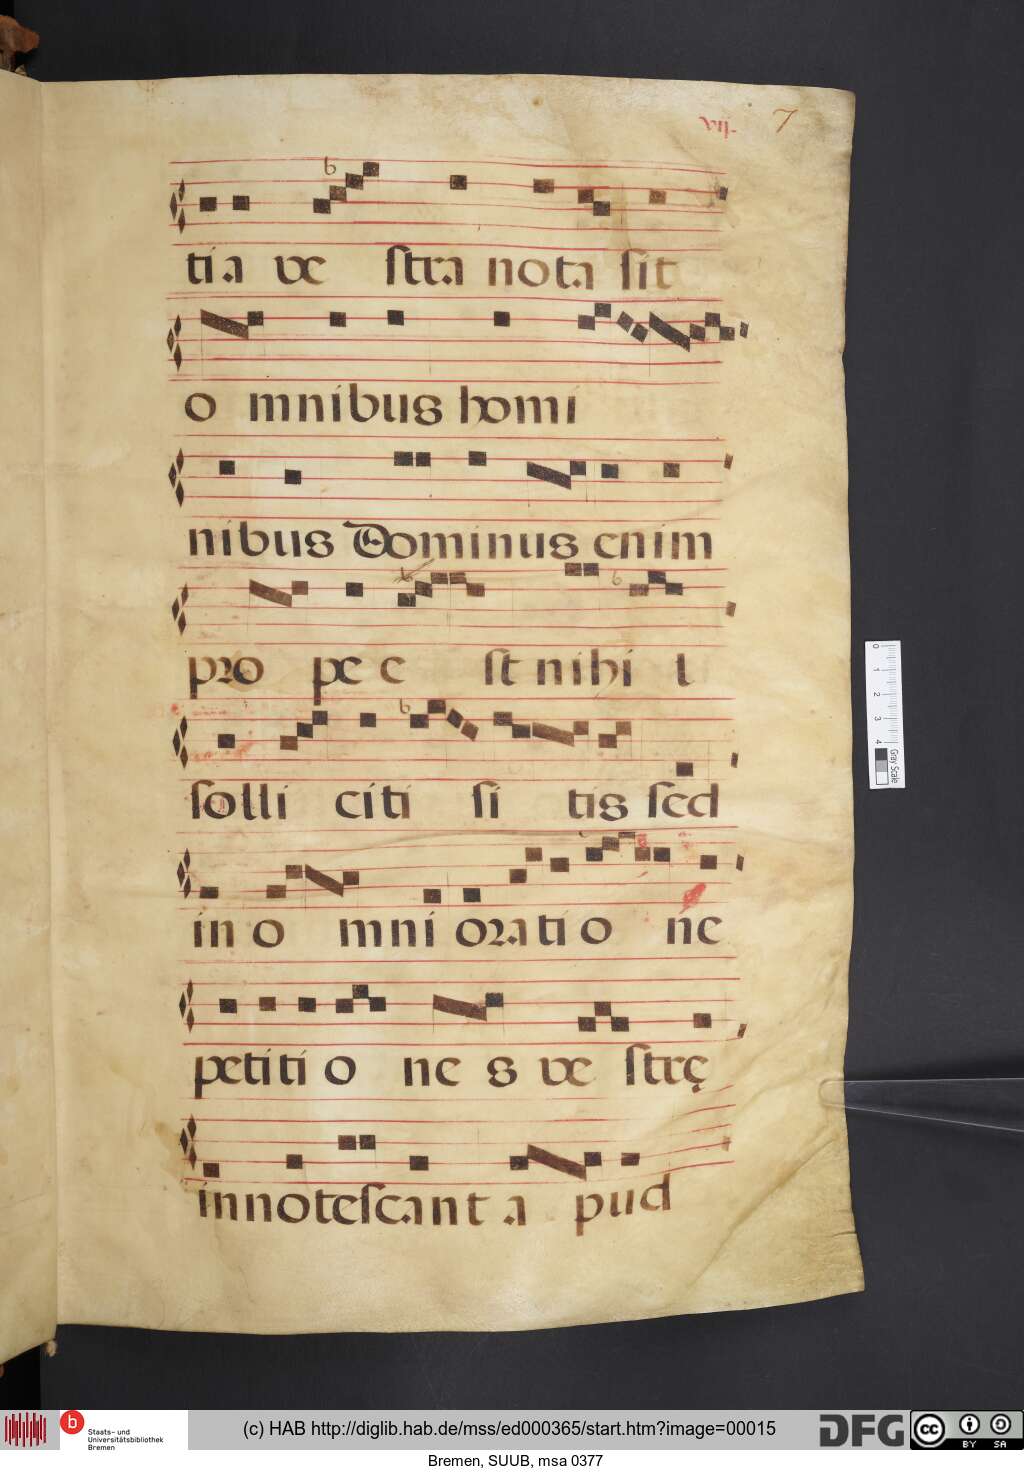 vij. 7
tia ve stra nota sit
o mnibus homi
nibus Dominus enim
pro pe e st nihi l
solli citi si tis sed
in o mni oratio ne
petiti o ne s ve strę
innotescant a pud
0 1 2 3 4 Gray Scale
(c) HAB http://diglib.hab.de/mss/ed000365/start.htm?image=00015
b Staats- und Universitätsbibliothek Bremen
DFG
cc BY SA
Bremen, SUUB, msa 0377